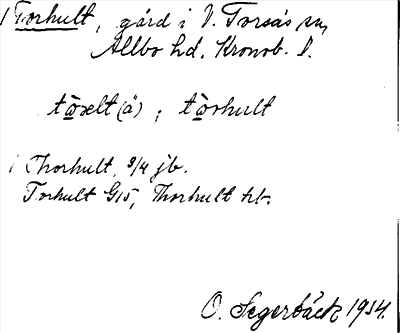 Torhult, gård i V. Torsås sn,
Allbo hd. Kronob. l.
tɷ̀relt (ä) ; tɷ̀rhult
Thorhult, 3/4 jb.
Torhult G15, Thorhult kb.
O. Segerbäck 1934.